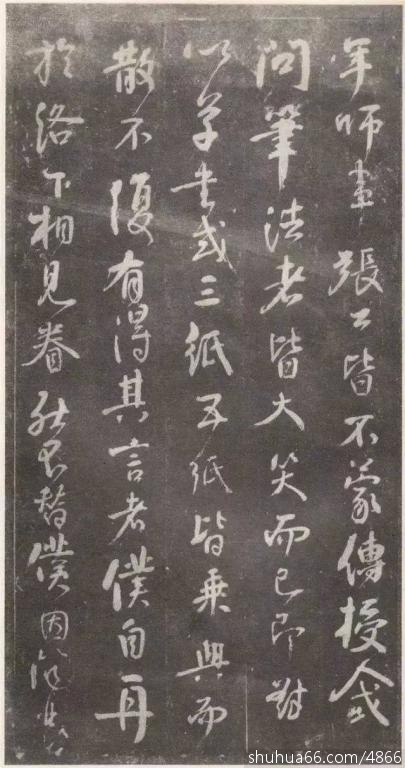 年師事張公皆不蒙傳授人或
問筆法者皆大笑而已即對
以草書或三紙五紙皆乘興而
散不復有得其言者僕自再
於洛下相見眷然不替僕因
shuhua66.com/4866